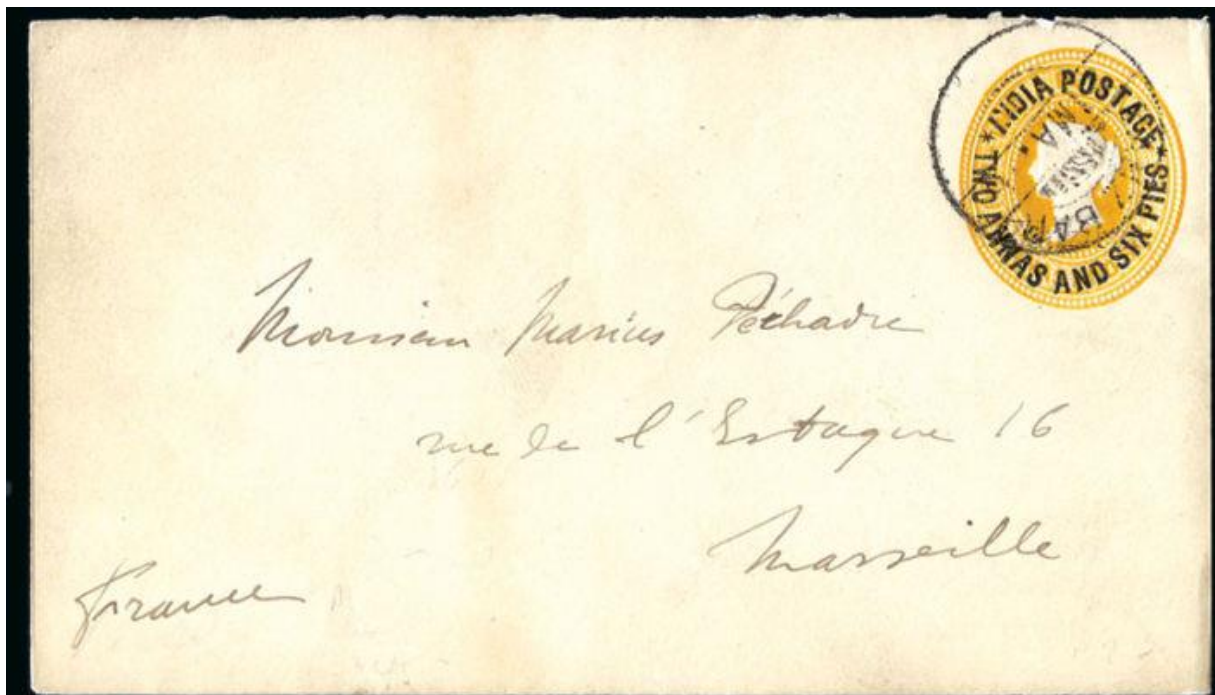 INDIA POSTAGE
TWO ANNAS AND SIX PIES
Monsieur Marius
rue de l'Estaque 16
Marseille
France